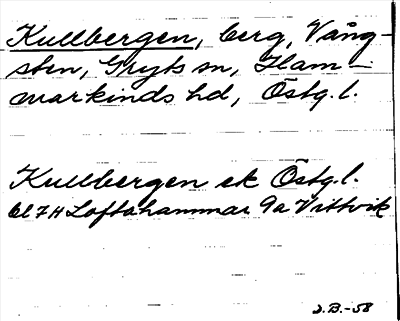 Kullbergen, berg, Vång-
sten, Gryts sn, Ham-
markinds hd, Östg. l.
Kullbergen ek Östg. l.
bl 7H Loftahammar 9a Vittvik
J.B.-58